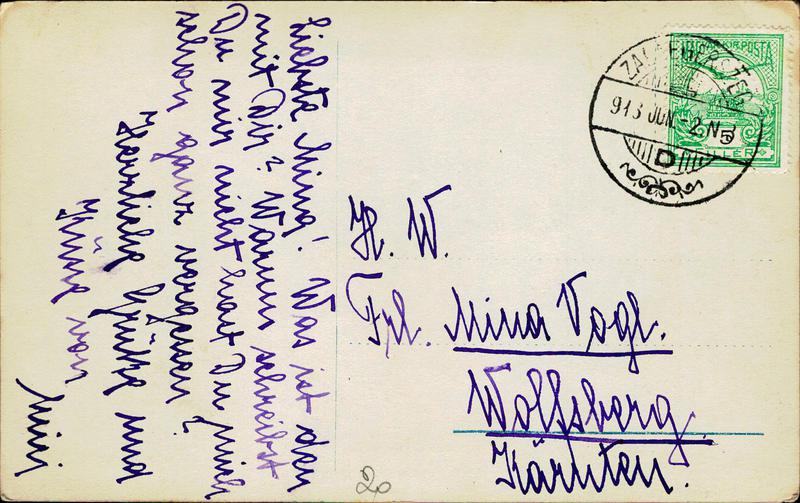 Liebste Mina! Was ist den
mit Dir? Warum schreibst
Du mir nicht hast Du mich
schon ganz vergessen?
Herzliche Grüße und
von
Mini
H. W.
Frl. Mina Vogl.
Wolfsberg
Kärnten.
ZALAEGERSZEG
913 JUN -2 N5
D
POSTA
20